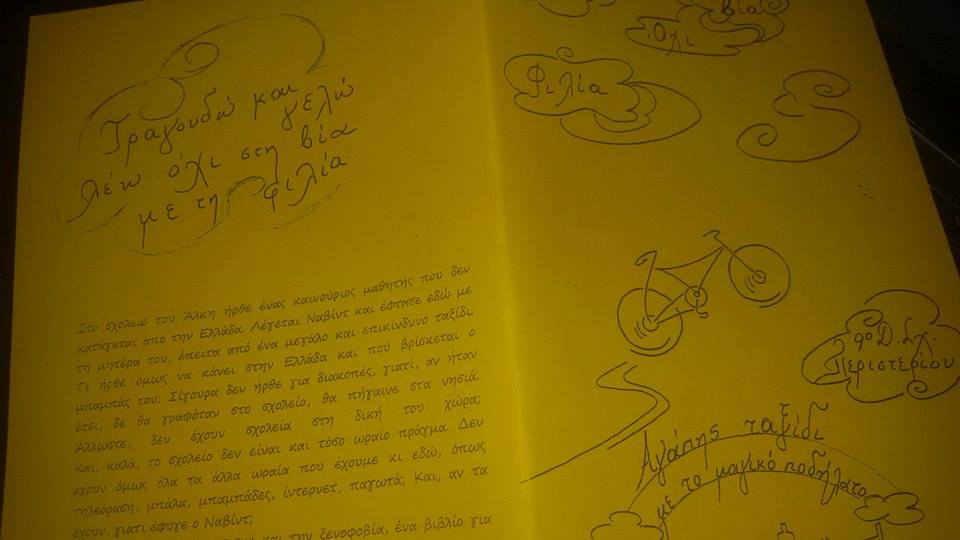 Τραγουδώ και
γελώ
λέω όχι στη βία
με τη φιλία
Στο σχολείο του Άλκη ήρθε ένας καινούριος μαθητής που δεν
κατάγεται από την Ελλάδα. Λέγεται Ναβίντ και έφτασε εδώ με
τη μητέρα του, έπειτα από ένα μεγάλο και επικίνδυνο ταξίδι.
Τι ήρθε όμως να κάνει στην Ελλάδα και πού βρίσκεται ο
μπαμπάς του; Σίγουρα δεν ήρθε για διακοπές, γιατί, αν ήταν
έτσι, δε θα γραφόταν στο σχολείο, θα πήγαινε στα νησιά.
Άλλωστε, δεν έχουν σχολεία στη δική του χώρα;
Και, καλά, το σχολείο δεν είναι και τόσο ωραίο πράγμα. Δεν
έχουν όμως όλα τα άλλα ωραία που έχουμε κι εδώ, όπως
τηλεόραση, μπάλα, μπαμπάδες, ίντερνετ, παγωτά; Και, αν τα
έχουν, γιατί έφυγε ο Ναβίντ;
και την ξενοφοβία, ένα βιβλίο για
βία
Όχι
Φιλία
9ο Δ.Σχ.
Περιστερίου
Αγάπης ταξίδι
με το μαγικό ποδήλατο